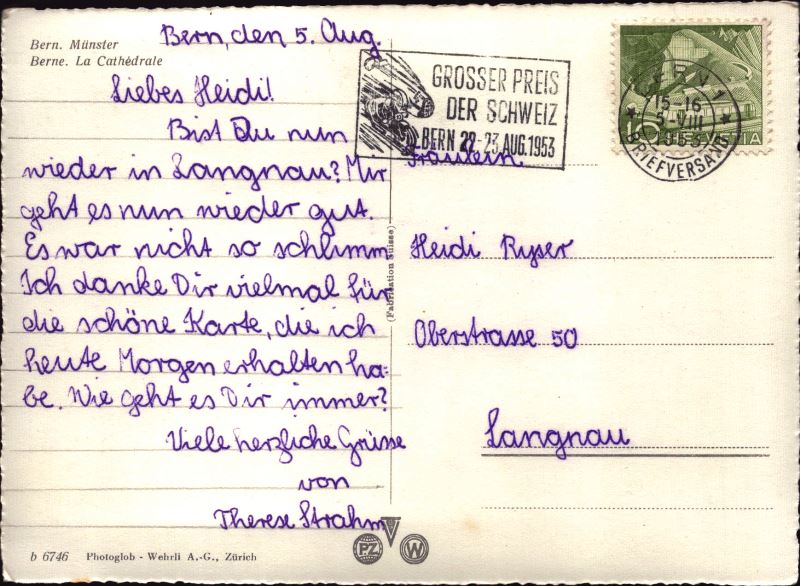 Bern. Münster
Berne. La Cathédrale
Bern, den 5. Aug.
Liebes Heidi!
Bist Du nun
wieder in Langnau? Mir
geht es nun wieder gut.
Es war nicht so schlimm
Ich danke Dir vielmal für
die schöne Karte, die ich
heute Morgen erhalten ha-
be. Wie geht es Dir immer?
Viele herzliche Grüsse
von
Therese Strahm
b 6746 Photoglob - Wehrli A.-G., Zürich
(Fabrication Suisse)
PZ W
GROSSER PREIS
DER SCHWEIZ
BERN 22-23. AUG. 1953
BERN 1
15-16
5-VIII
1953
BRIEFVERSAND
10 HELVETIA
Fräulein
Heidi Ryser
Oberstrasse 50
Langnau